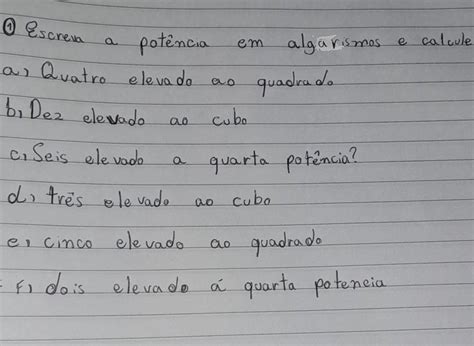 ① Escreva a potência em algarismos e calcule
a) Quatro elevado ao quadrado
b) Dez elevado ao cubo
c) Seis elevado a quarta potência?
d) três elevado ao cubo
e) cinco elevado ao quadrado
f) dois elevado á quarta potencia